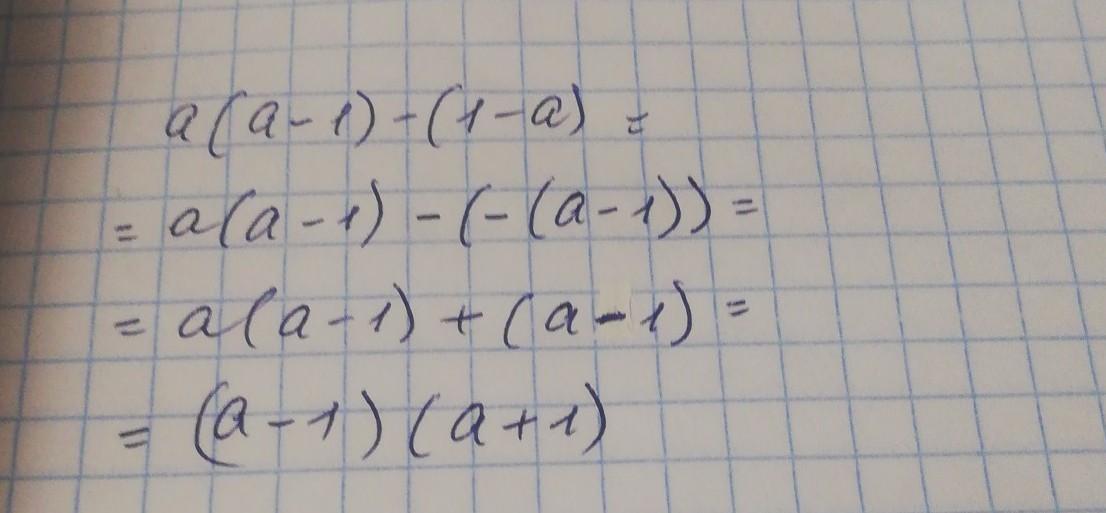 a(a-1)-(1-a) =
= a(a-1) -(-(a-1)) =
= a(a-1) + (a-1) =
= (a-1)(a+1)